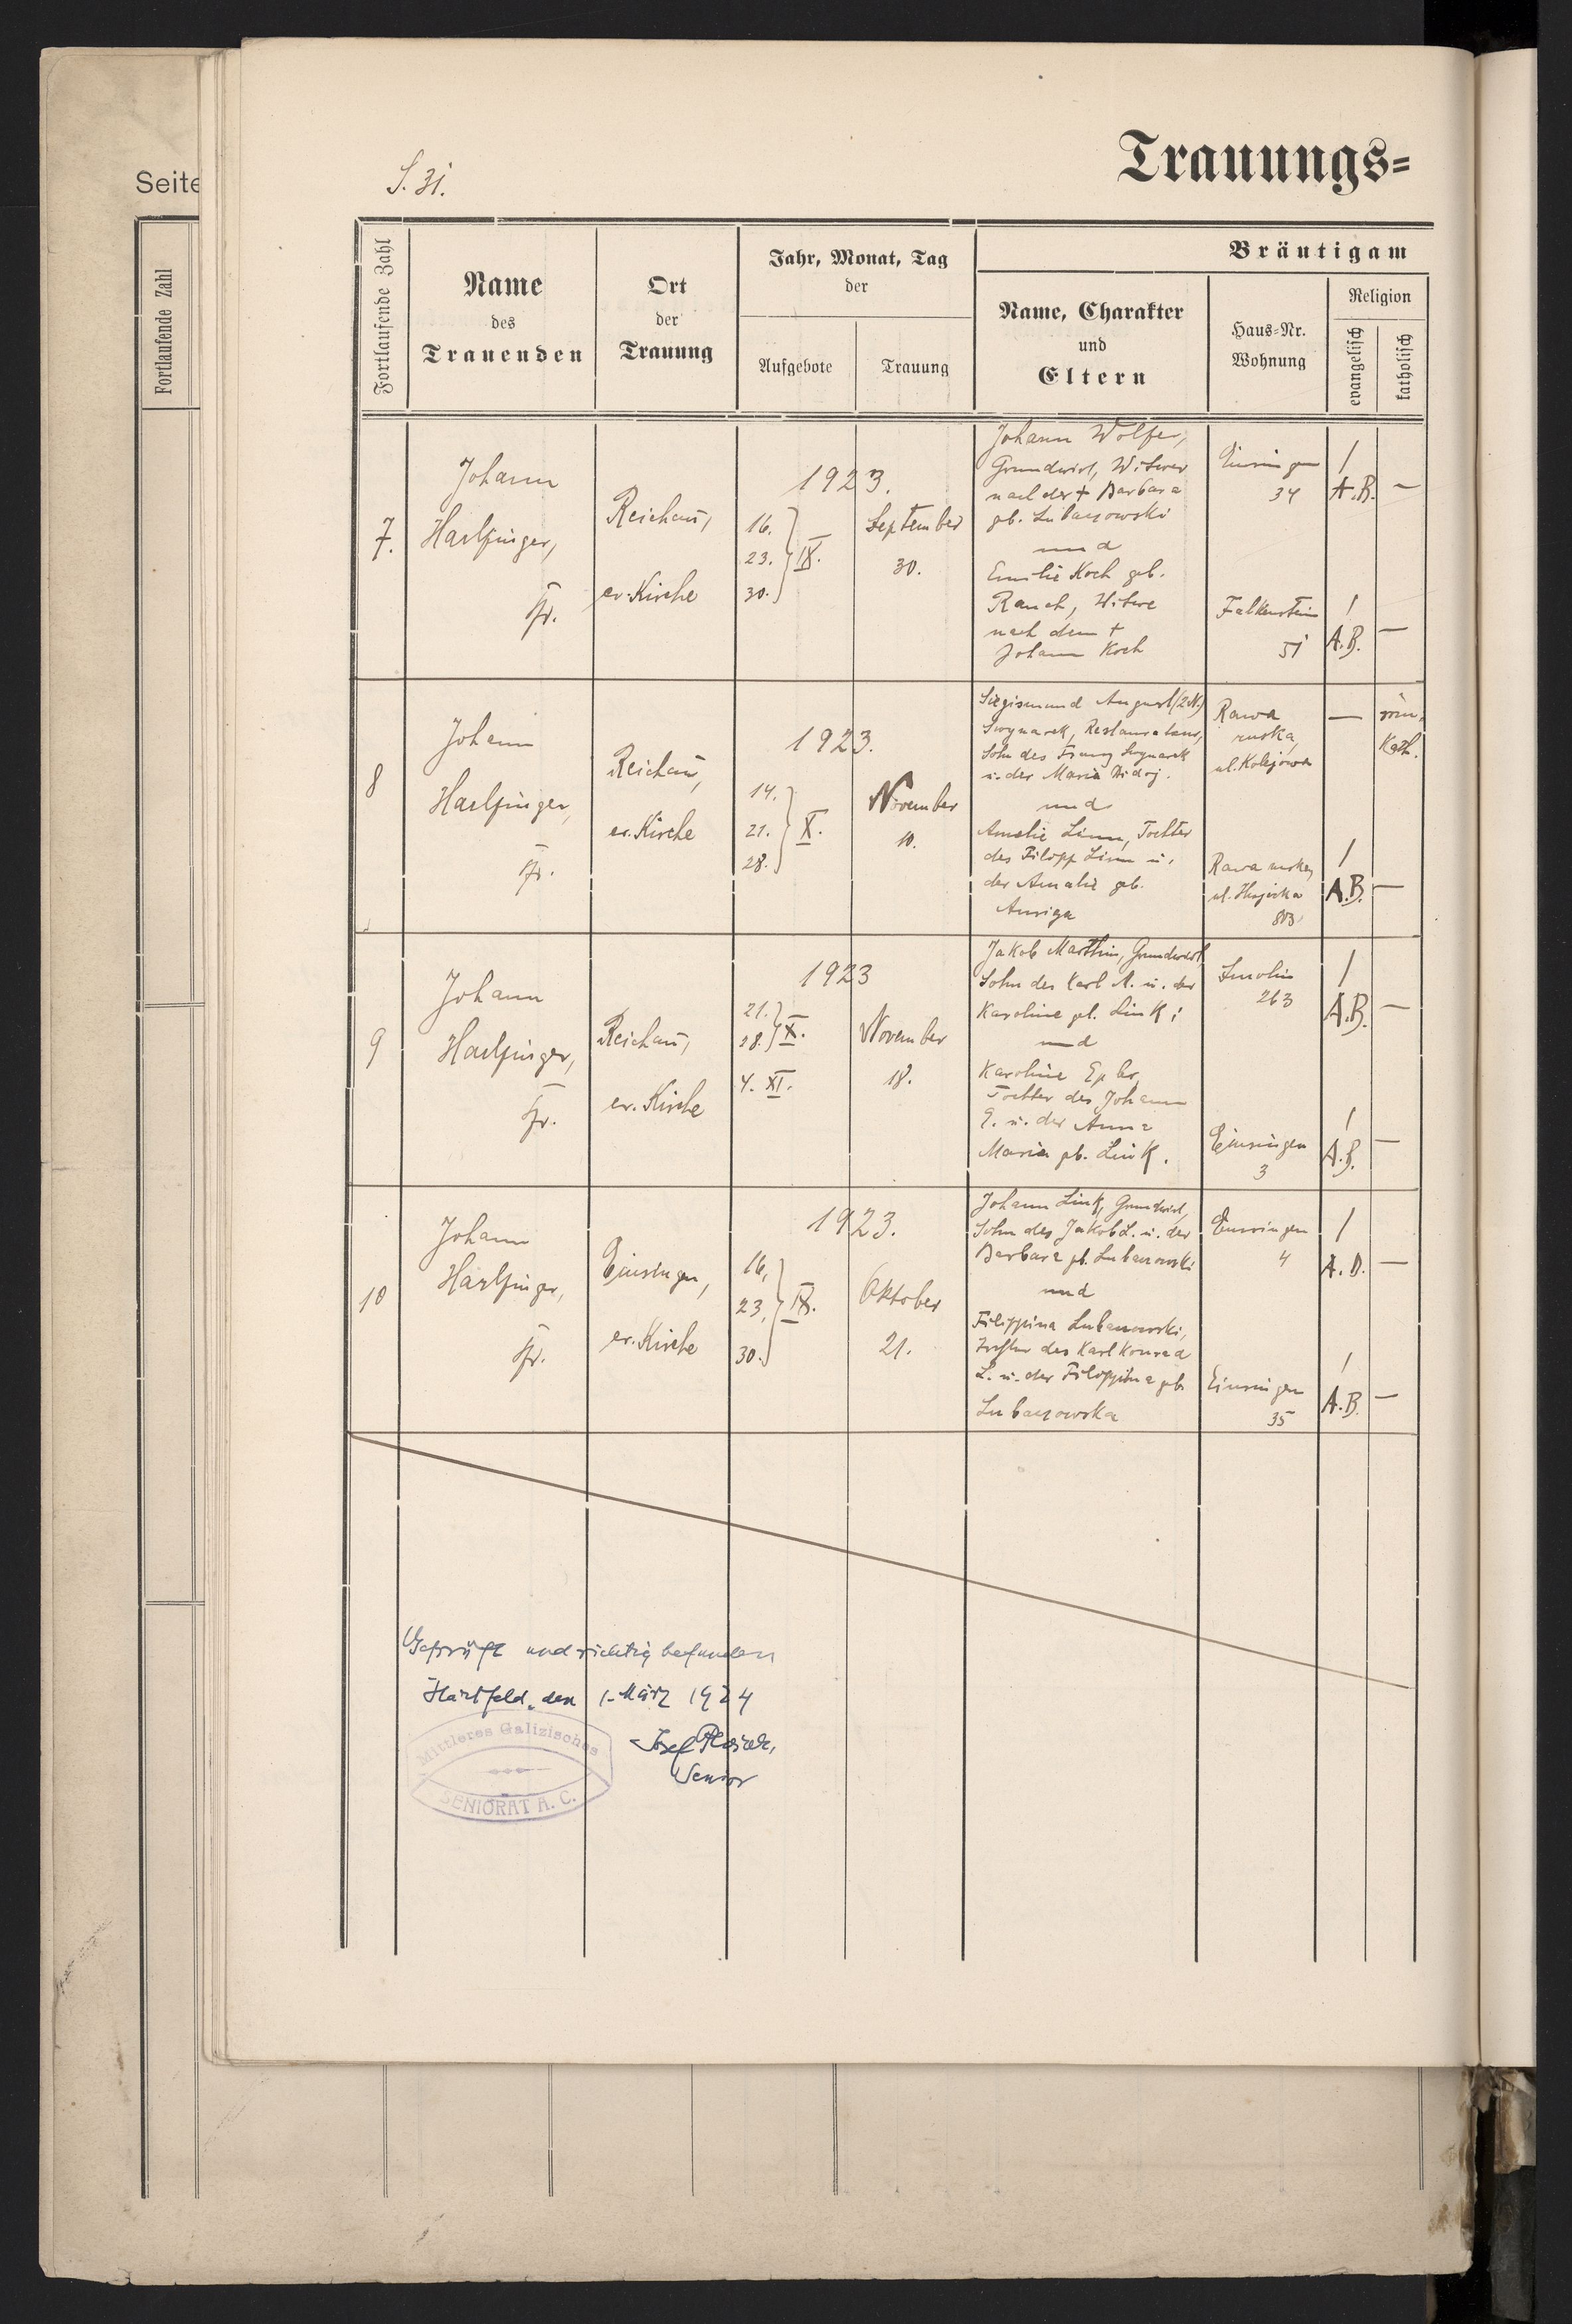 Seite
Fortlaufende Zahl
S. 31.
Trauungs=
Fortlaufende Zahl
Name
des
Trauenden
Ort
der
Trauung
Jahr, Monat, Tag
der
Aufgebote
Trauung
Bräutigam
Name, Charakter
und
Eltern
Haus=Nr.
Wohnung
Religion
evangelisch
katholisch
7.
Johann
Harlfinger,
Pfr.
Reichau,
ev. Kirche
1923.
16.
23. } IX.
30.
September
30.
Johann Wolfer,
Grundwirt, Witwer
nach der + Barbara
gb. Lubaczowski
und
Emilie Koch geb.
Rauch, Witwe
nach dem +
Johann Koch
Einsingen
34
/
A.B.
—
Falkenstein
51
/
A.B.
—
8
Johann
Harlfinger,
Pfr.
Reichau,
ev. Kirche
1923.
14.
21. } X.
28.
November
10.
Siegismund August (2 N.)
Restaurateur,
Sohn des Franz
u. der Maria
und
Amalie Linn, Tochter
des Filipp Linn u.
der Amalie geb.
Rawa
ruska,
ul. Kolejowa
—
röm.
Kath.
Rawa ruska,
ul.
803
/
A.B.
—
9
Johann
Harlfinger,
Pfr.
Reichau,
ev. Kirche
1923
21. }
28. } X.
4. XI.
November
18.
Jakob Marthin, Grundwirt,
Sohn des Karl M. u. der
Karoline gb. Link;
und
Karoline Epler,
Tochter des Johann
E. u. der Anna
Maria gb. Link.
Smolin
263
/
A.B.
—
Einsingen
3
/
A.B.
—
10
Johann
Harlfinger,
Pfr.
Einsingen,
ev. Kirche
1923.
16.
23. } IX.
30.
Oktober
21.
Johann Link, Grundwirt,
Sohn des Jakob L. u. der
Barbara gb. Lubaczowski
und
Filippina Lubaczowski,
Tochter des Karl Konrad
L. u. der Filippina gb.
Lubaczowska
Einsingen
4
/
A.B.
—
Einsingen
35
/
A.B.
—
Geprüft und richtig befunden
Hartfeld, den 1. März 1924
Josef
Senior
Mittleres Galizisches
SENIORAT A. C.